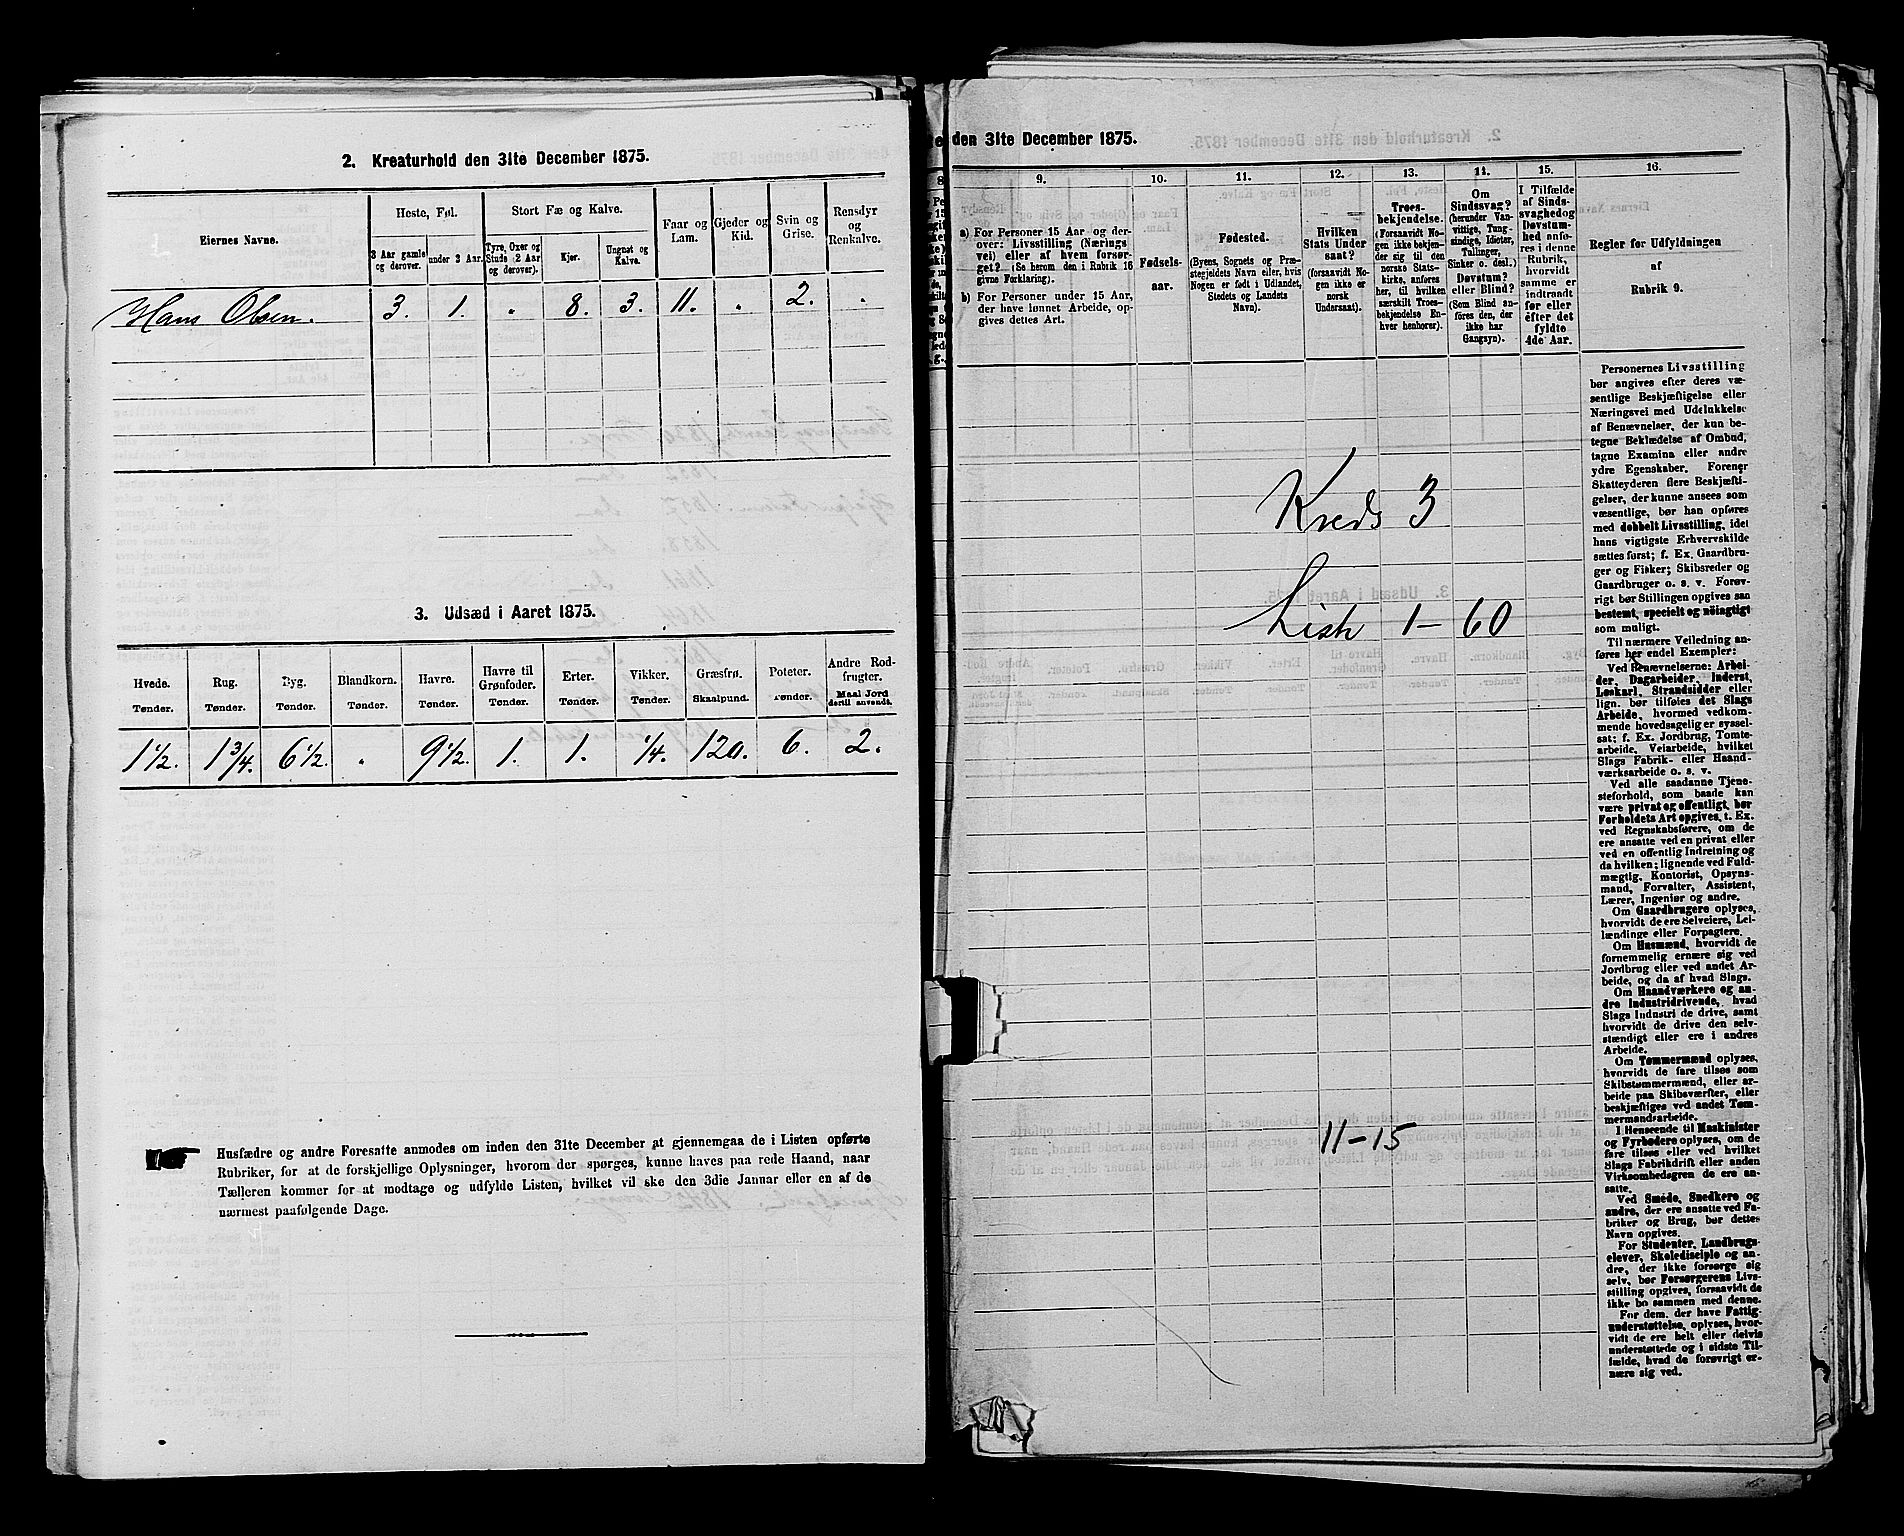 2. Kreaturhold den 31te December 1875.
Eiernes Navne.
Heste, Føl.
Stort Fæ og Kalve.
Faar og Lam.
Gjeder og Kid.
Svin og Grise.
Rensdyr og Renkalve.
3 Aar gamle og derover.
under 3 Aar.
Tyre, Oxer og Stude (2 Aar og derover).
Kjør.
Ungnøt og Kalve.
Hans Olsen. 3. 1. " 8. 3. 11. " 2. "
3. Udsæd i Aaret 1875.
Hvede. Rug. Byg. Blandkorn. Havre. Havre til Grønfoder. Erter. Vikker. Græsfrø. Poteter. Andre Rodfrugter.
Tønder. Tønder. Tønder. Tønder. Tønder. Tønder. Tønder. Tønder. Skaalpund. Tønder. Maal Jord dertil anvendt.
1 1/2. 1 3/4. 6 1/2. " 9 1/2. 1. 1. 1/4. 120. 6. 2.
Husfædre og andre Foresatte anmodes om inden den 31te December at gjennemgaa de i Listen opførte
Rubriker, for at de forskjellige Oplysninger, hvorom der spørges, kunne haves paa rede Haand, naar
Tælleren kommer for at modtage og udfylde Listen, hvilket vil ske den 3die Januar eller en af de
nærmest paafølgende Dage.
den 31te December 1875.
9.
a) For Personer 15 Aar og derover: Livsstilling (Næringsvei) eller af hvem forsørget? (Se herom den i Rubrik 16 givne Forklaring).
b) For Personer under 15 Aar, der have lønnet Arbeide, opgives dettes Art.
10.
Fødselsaar.
11.
Fødested.
(Byens, Sognets og Præstegjeldets Navn eller, hvis Nogen er født i Udlandet, Stedets og Landets Navn).
12.
Hvilken Stats Undersaat?
(forsaavidt Nogen ikke er norsk Undersaat).
13.
Troesbekjendelse.
(Forsaavidt Nogen ikke bekjender sig til den norske Statskirke, anføres her, til hvilken særskilt Troesbekjendelse Enhver henhører).
14.
Om Sindssvag? (herunder Vanvittige, Tungsindige, Idioter, Tullinger, Sinker o. desl.) Døvstum? eller Blind? (Som Blind anføres den, der ikke har Gangsyn).
15.
I Tilfælde af Sindssvaghed og Døvstumhed anføres i denne Rubrik, hvorvidt samme er indtraadt før eller efter det fyldte 4de Aar.
16.
Regler for Udfyldningen
af
Rubrik 9.
Personernes Livsstilling
bør angives efter deres væ-
sentlige Beskjæftigelse eller
Næringsvei med Udelukkelse
af Benævnelser, der kun be-
tegne Beklædelse af Ombud,
tagne Examina eller andre
ydre Egenskaber. Forener
Skatteyderen flere Beskjæfti-
gelser, der kunne ansees som
væsentlige, bør han opføres
med dobbelt Livsstilling, idet
hans vigtigste Erhvervskilde
sættes først; f. Ex. Gaardbru-
ger og Fisker; Skibsreder og
Gaardbruger o. s. v. Forøv-
rigt bør Stillingen opgives saa
bestemt, specielt og nøiagtigt
som muligt.
Til nærmere Veiledning an-
føres her endel Exempler:
Ved Benævnelserne: Arbei-
der, Dagarbeider, Inderst,
Løskarl, Strandsidder eller
lign. bør tilføies det Slags
Arbeide, hvormed vedkom-
mende hovedsagelig er syssel-
sat; f. Ex. Jordbrug, Tomte-
arbeide, Veiarbeide, hvilket
Slags Fabrik- eller Haand-
værksarbeide o. s. v.
Ved alle saadanne Tjene-
steforhold, som baade kan
være privat og offentligt, bør
Forholdets Art opgives, t. Ex.
ved Regnskabsførere, om de
ere ansatte ved en privat eller
ved en offentlig Indretning og
da hvilken; lignende ved Fuld-
mægtig, Kontorist, Opsyns-
mand, Forvalter, Assistent,
Lærer, Ingeniør og andre.
Om Gaardbrugere oplyses,
hvorvidt de ere Selveiere, Lei-
lændinge eller Forpagtere.
Om Husmænd, hvorvidt de
fornemmelig ernære sig ved
Jordbrug eller ved andet Ar-
beide, og da af hvad Slags.
Om Haandværkere og an-
dre Industridrivende, hvad
Slags Industri de drive, samt
hvorvidt de drive den selv-
stændigt eller ere i andres
Arbeide.
Om Tømmermænd oplyses,
hvorvidt de fare tilsøs som
Skibstømmermænd, eller ar-
beide paa Skibsværfter, eller
beskjæftiges ved andet Tøm-
mermandsarbeide.
I Henseende til Maskinister
og Fyrbødere oplyses, om de
fare tilsøs eller ved hvilket
Slags Fabrikdrift eller anden
Virksomhedsgren de ere an-
satte.
Ved Smede, Snedkere og
andre, der ere ansatte ved Fa-
briker og Brug, bør dettes
Navn opgives.
For Studenter, Landbrugs-
elever, Skoledisciple og an-
dre, der ikke forsørge sig
selv, bør Forsørgerens Livs-
stilling opgives, forsaavidt de
ikke bo sammen med denne.
For dem, der have Fattig-
understøttelse, oplyses, hvor-
vidt de ere helt eller delvis
understøttede og i sidste Til-
fælde, hvad de forøvrigt er-
nære sig ved.
Kreds 3
Liste 1-60
11-15